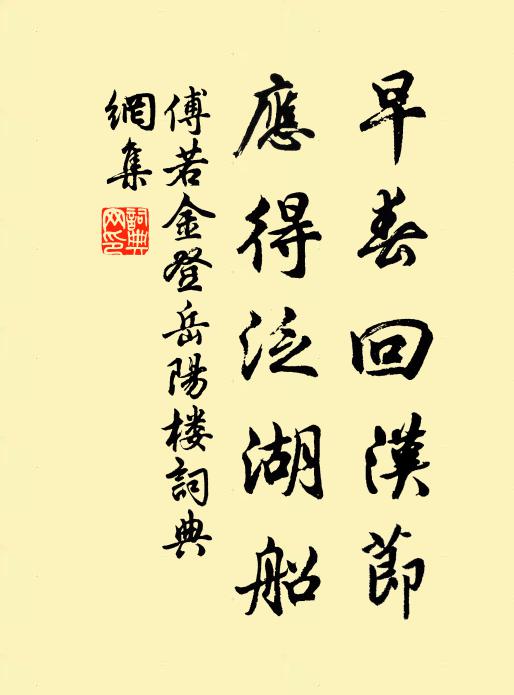 早春回漢節
應得泛湖船
傅若金登岳陽楼詞典
網集
詞典网印